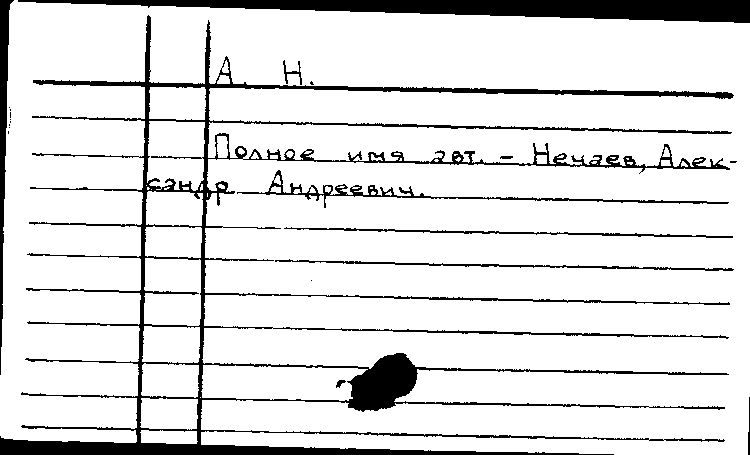 А. Н.
Полное имя авт. – Нечаев, Алек-
сандр Андреевич.